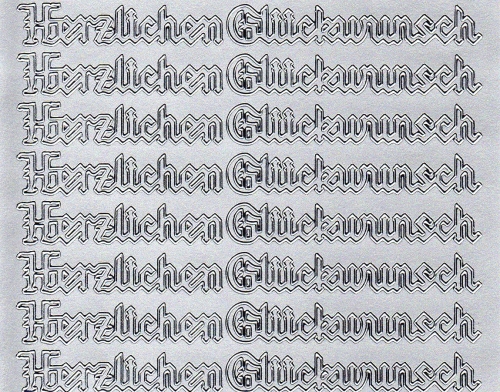 Herzlichen Glückwunsch
Herzlichen Glückwunsch
Herzlichen Glückwunsch
Herzlichen Glückwunsch
Herzlichen Glückwunsch
Herzlichen Glückwunsch
Herzlichen Glückwunsch
Herzlichen Glückwunsch